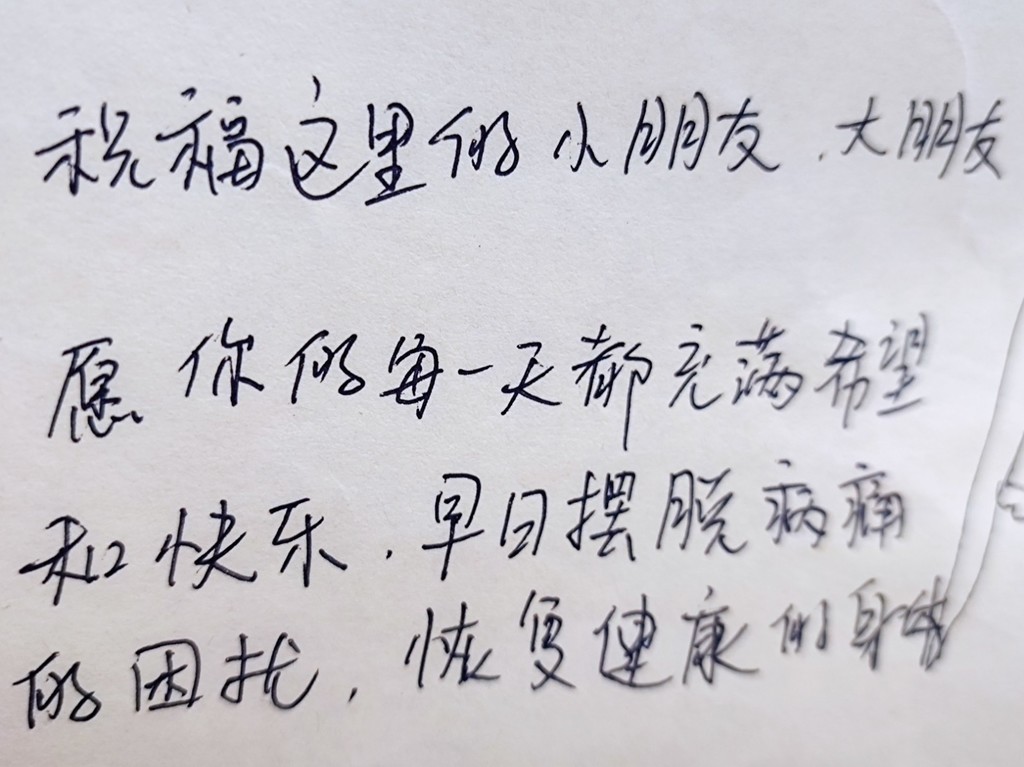 祝福这里的小朋友、大朋友
愿你的每一天都充满希望
和快乐,早日摆脱病痛
的困扰,恢复健康的身体